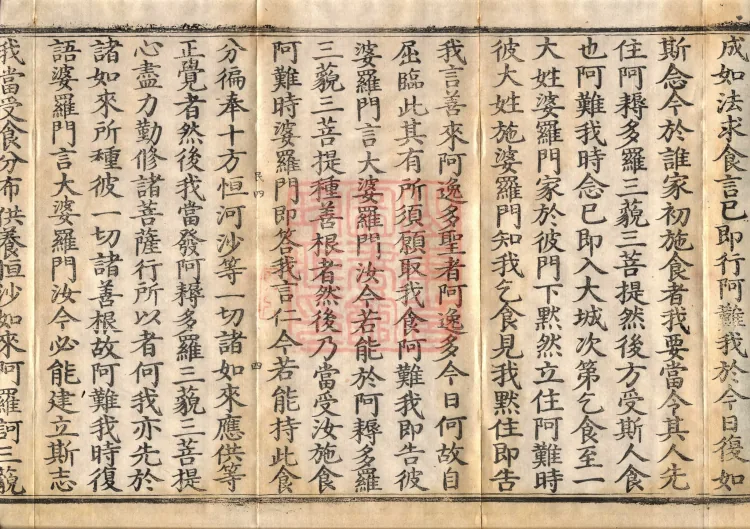 成如法求食言已即行阿難我於今日復如
斯念今於誰家初施食者我要當令其人先
住阿耨多羅三藐三菩提然後方受斯人食
也阿難我時念已即入大城次第乞食至一
大姓婆羅門家於彼門下默然立住阿難時
彼大姓施婆羅門知我乞食見我默住即告
我言善來阿逸多聖者阿逸多今日何故自
屈臨此其有所須願取我食阿難我即告彼
婆羅門言大婆羅門汝今若能於阿耨多羅
三藐三菩提種善根者然後乃當受汝施食
阿難時婆羅門即答我言仁今若能持此食
民四 四
分徧奉十方恒河沙等一切諸如來應供等
正覺者然後我當發阿耨多羅三藐三菩提
心盡力勤修諸菩薩行所以者何我亦先於
諸如來所種彼一切諸善根故阿難我時復
語婆羅門言大婆羅門汝今必能建立斯志
我當受食分布供養恒沙如來阿羅訶三藐